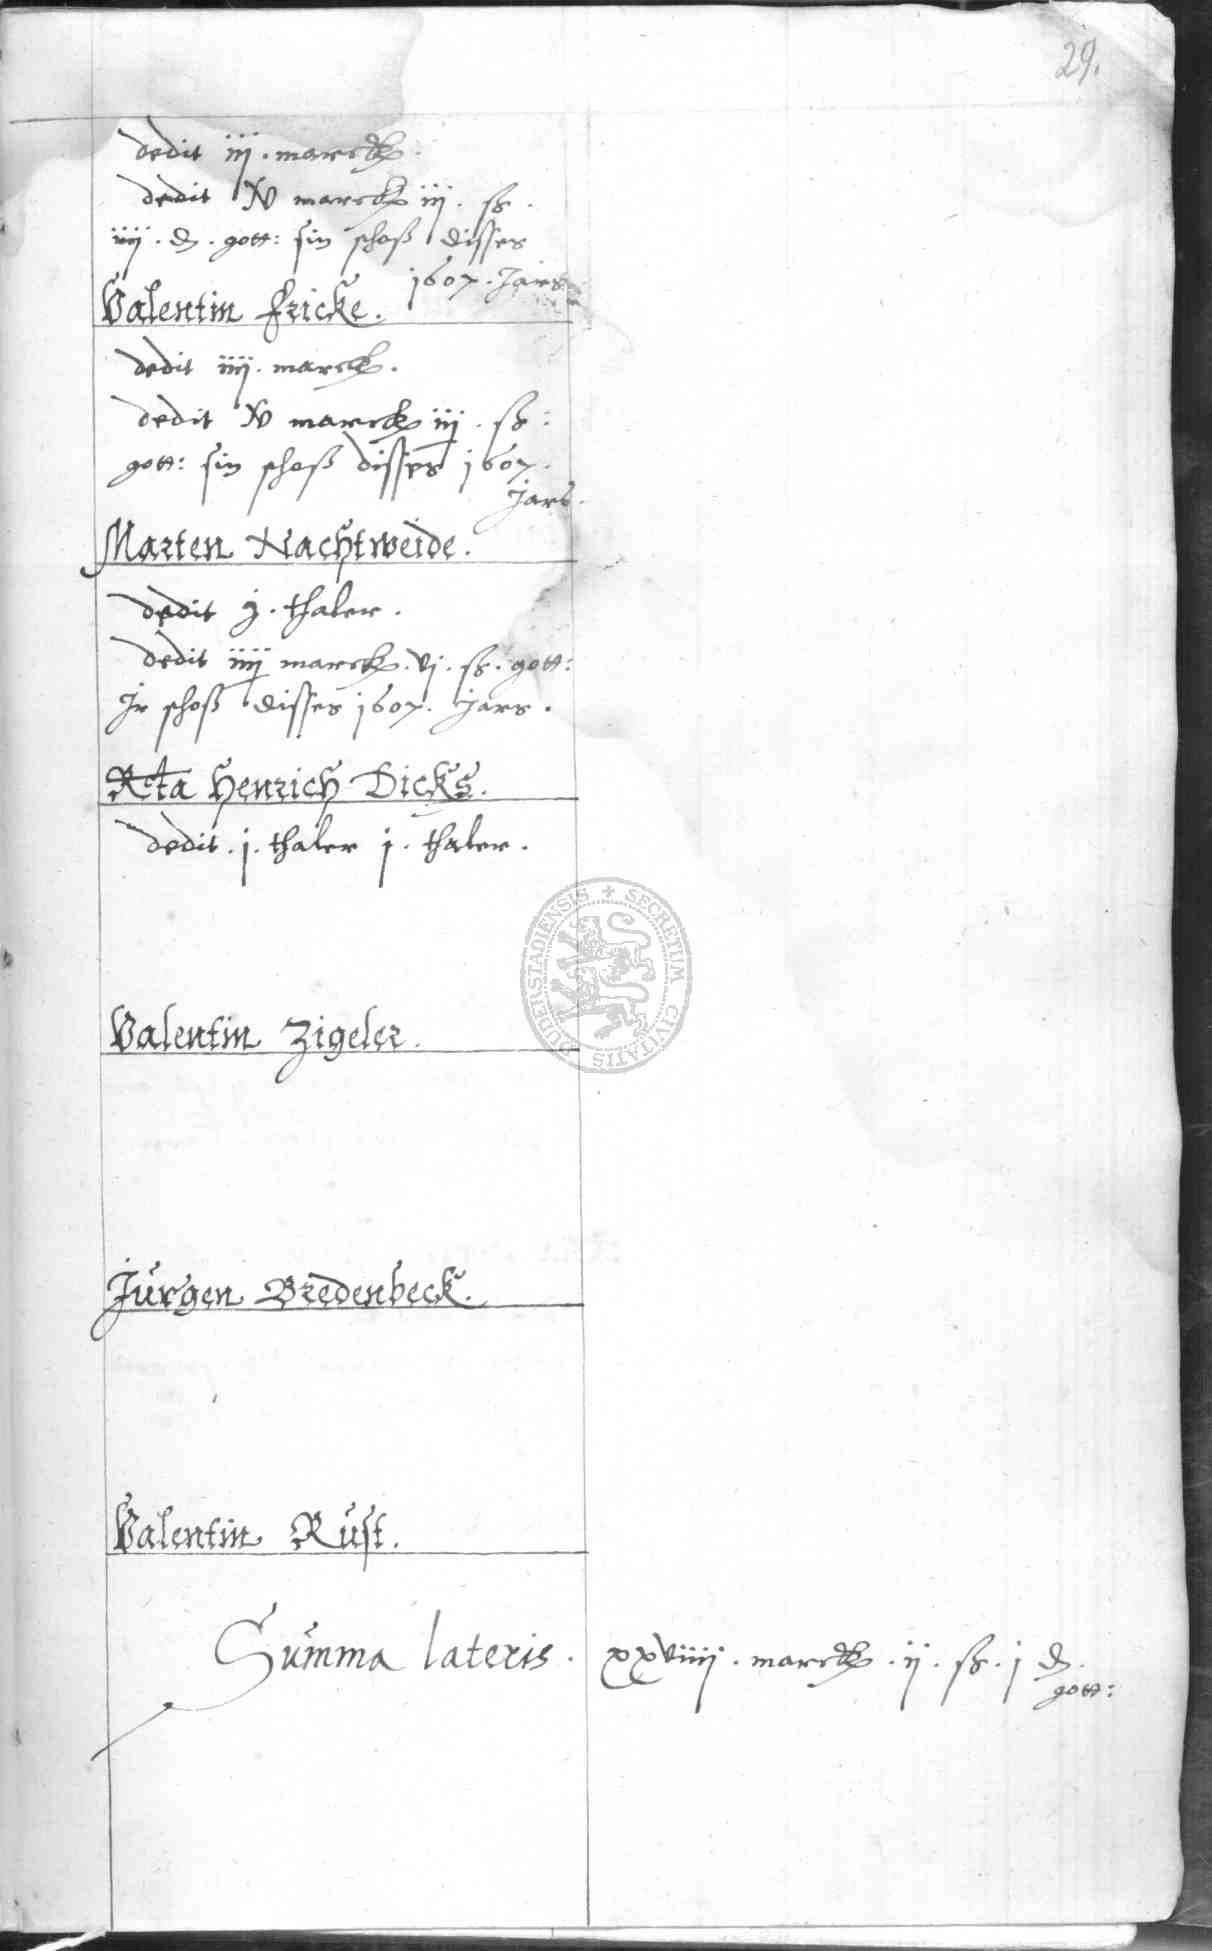 29.
dedit iij. marck.
dedit XV marck iij. ß.
iiij. d. gott: sin schoß disses
1607. Jars
Valentin Fricke.
dedit iiij. marck.
dedit XV marck iij. ß:
gott: sin schoß disses 1607.
Jars.
Marten Nachtweide.
dedit j. thaler.
dedit iiij marck. vj. ß. gott:
Jr schoß disses 1607. Jars.
Rcta Henrich Dicks.
dedit. j. thaler j. thaler.
SECRETUM CIVITATIS DUDERSTADIENSIS
Valentin Zigeler.
Jürgen Bredenbeck.
Valentin Rust.
Summa lateris. xxviiij. marck. ij. ß. j d.
gott: